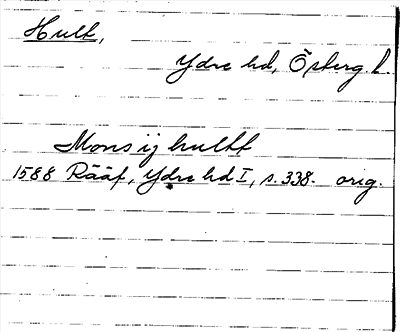 Hult,
Ydre hd, Östberg. l.
Mons ij hultt
1588 Rääf, Ydre hd I, s. 338. orig.